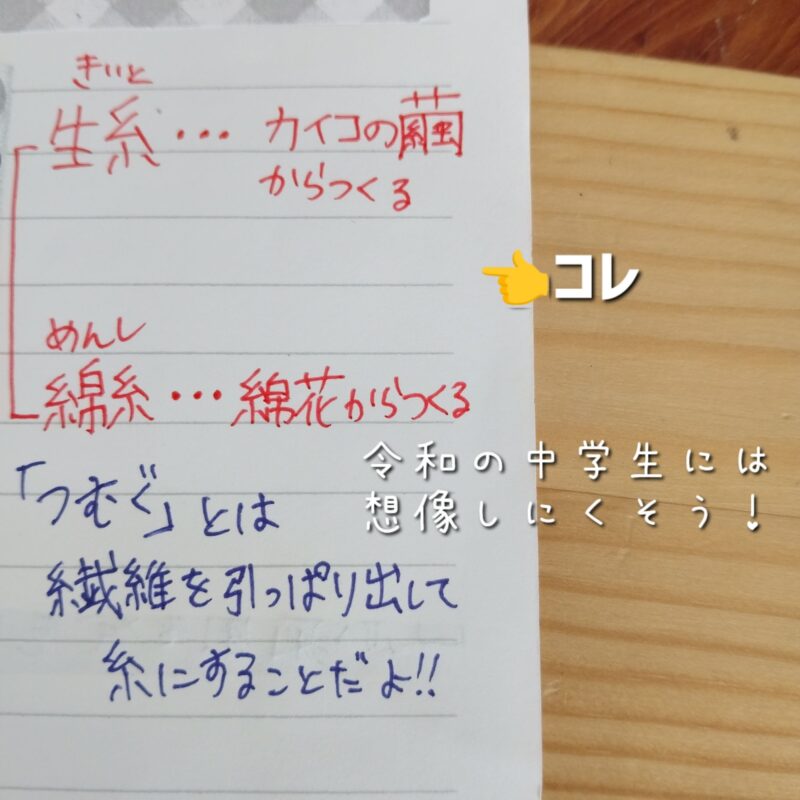 きいと
生糸・・・カイコの繭
からつくる
👈コレ
めんし
綿糸・・・綿花からつくる
令和の中学生には
想像しにくそう!
「つむぐ」とは
繊維を引っぱり出して
糸にすることだよ!!